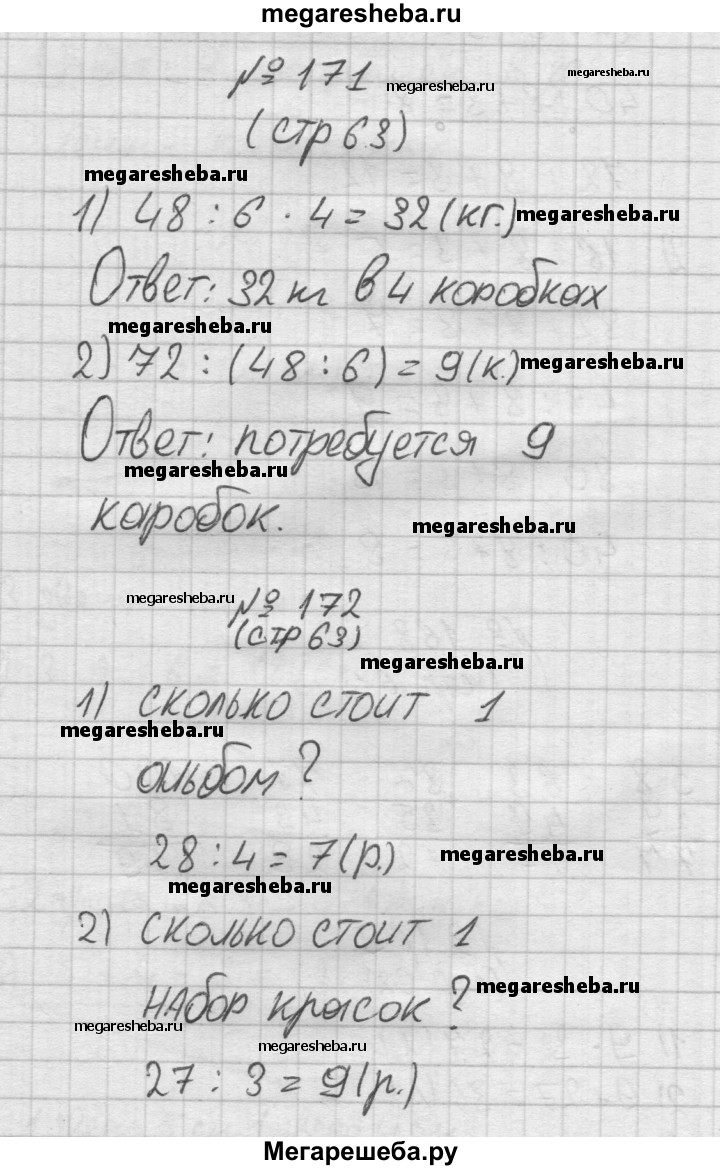 megaresheba.ru
№ 171
megaresheba.ru
megaresheba.ru
(стр 63)
megaresheba.ru
1) 48 : 6 · 4 = 32 (кг.)
megaresheba.ru
Ответ: 32 кг в 4 коробках
megaresheba.ru
2) 72 : (48 : 6) = 9 (к.)
megaresheba.ru
Ответ: потребуется 9
megaresheba.ru
каробок.
megaresheba.ru
megaresheba.ru
№ 172
(стр 63)
megaresheba.ru
1) сколько стоит 1
megaresheba.ru
альбом?
28 : 4 = 7 (р.)
megaresheba.ru
megaresheba.ru
2) сколько стоит 1
набор красок?
megaresheba.ru
megaresheba.ru
megaresheba.ru
27 : 3 = 9 (р.)
Мегарешеба.ру